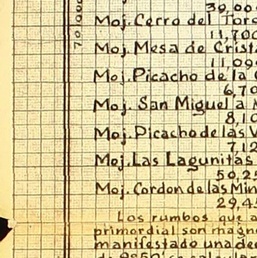 39,00
Moj. Cerro del Toro
11,700
Moj. Mesa de Crist
11,09
Moj. Picacho de la
6,70
Moj. San Miguel a
8,10
Moj. Picacho de las V
7,12
Moj. Las Lagunitas
50,25
Moj. Cordon de las Min
29,45
Los rumbos que a
primordial son magne
manifestado una dec